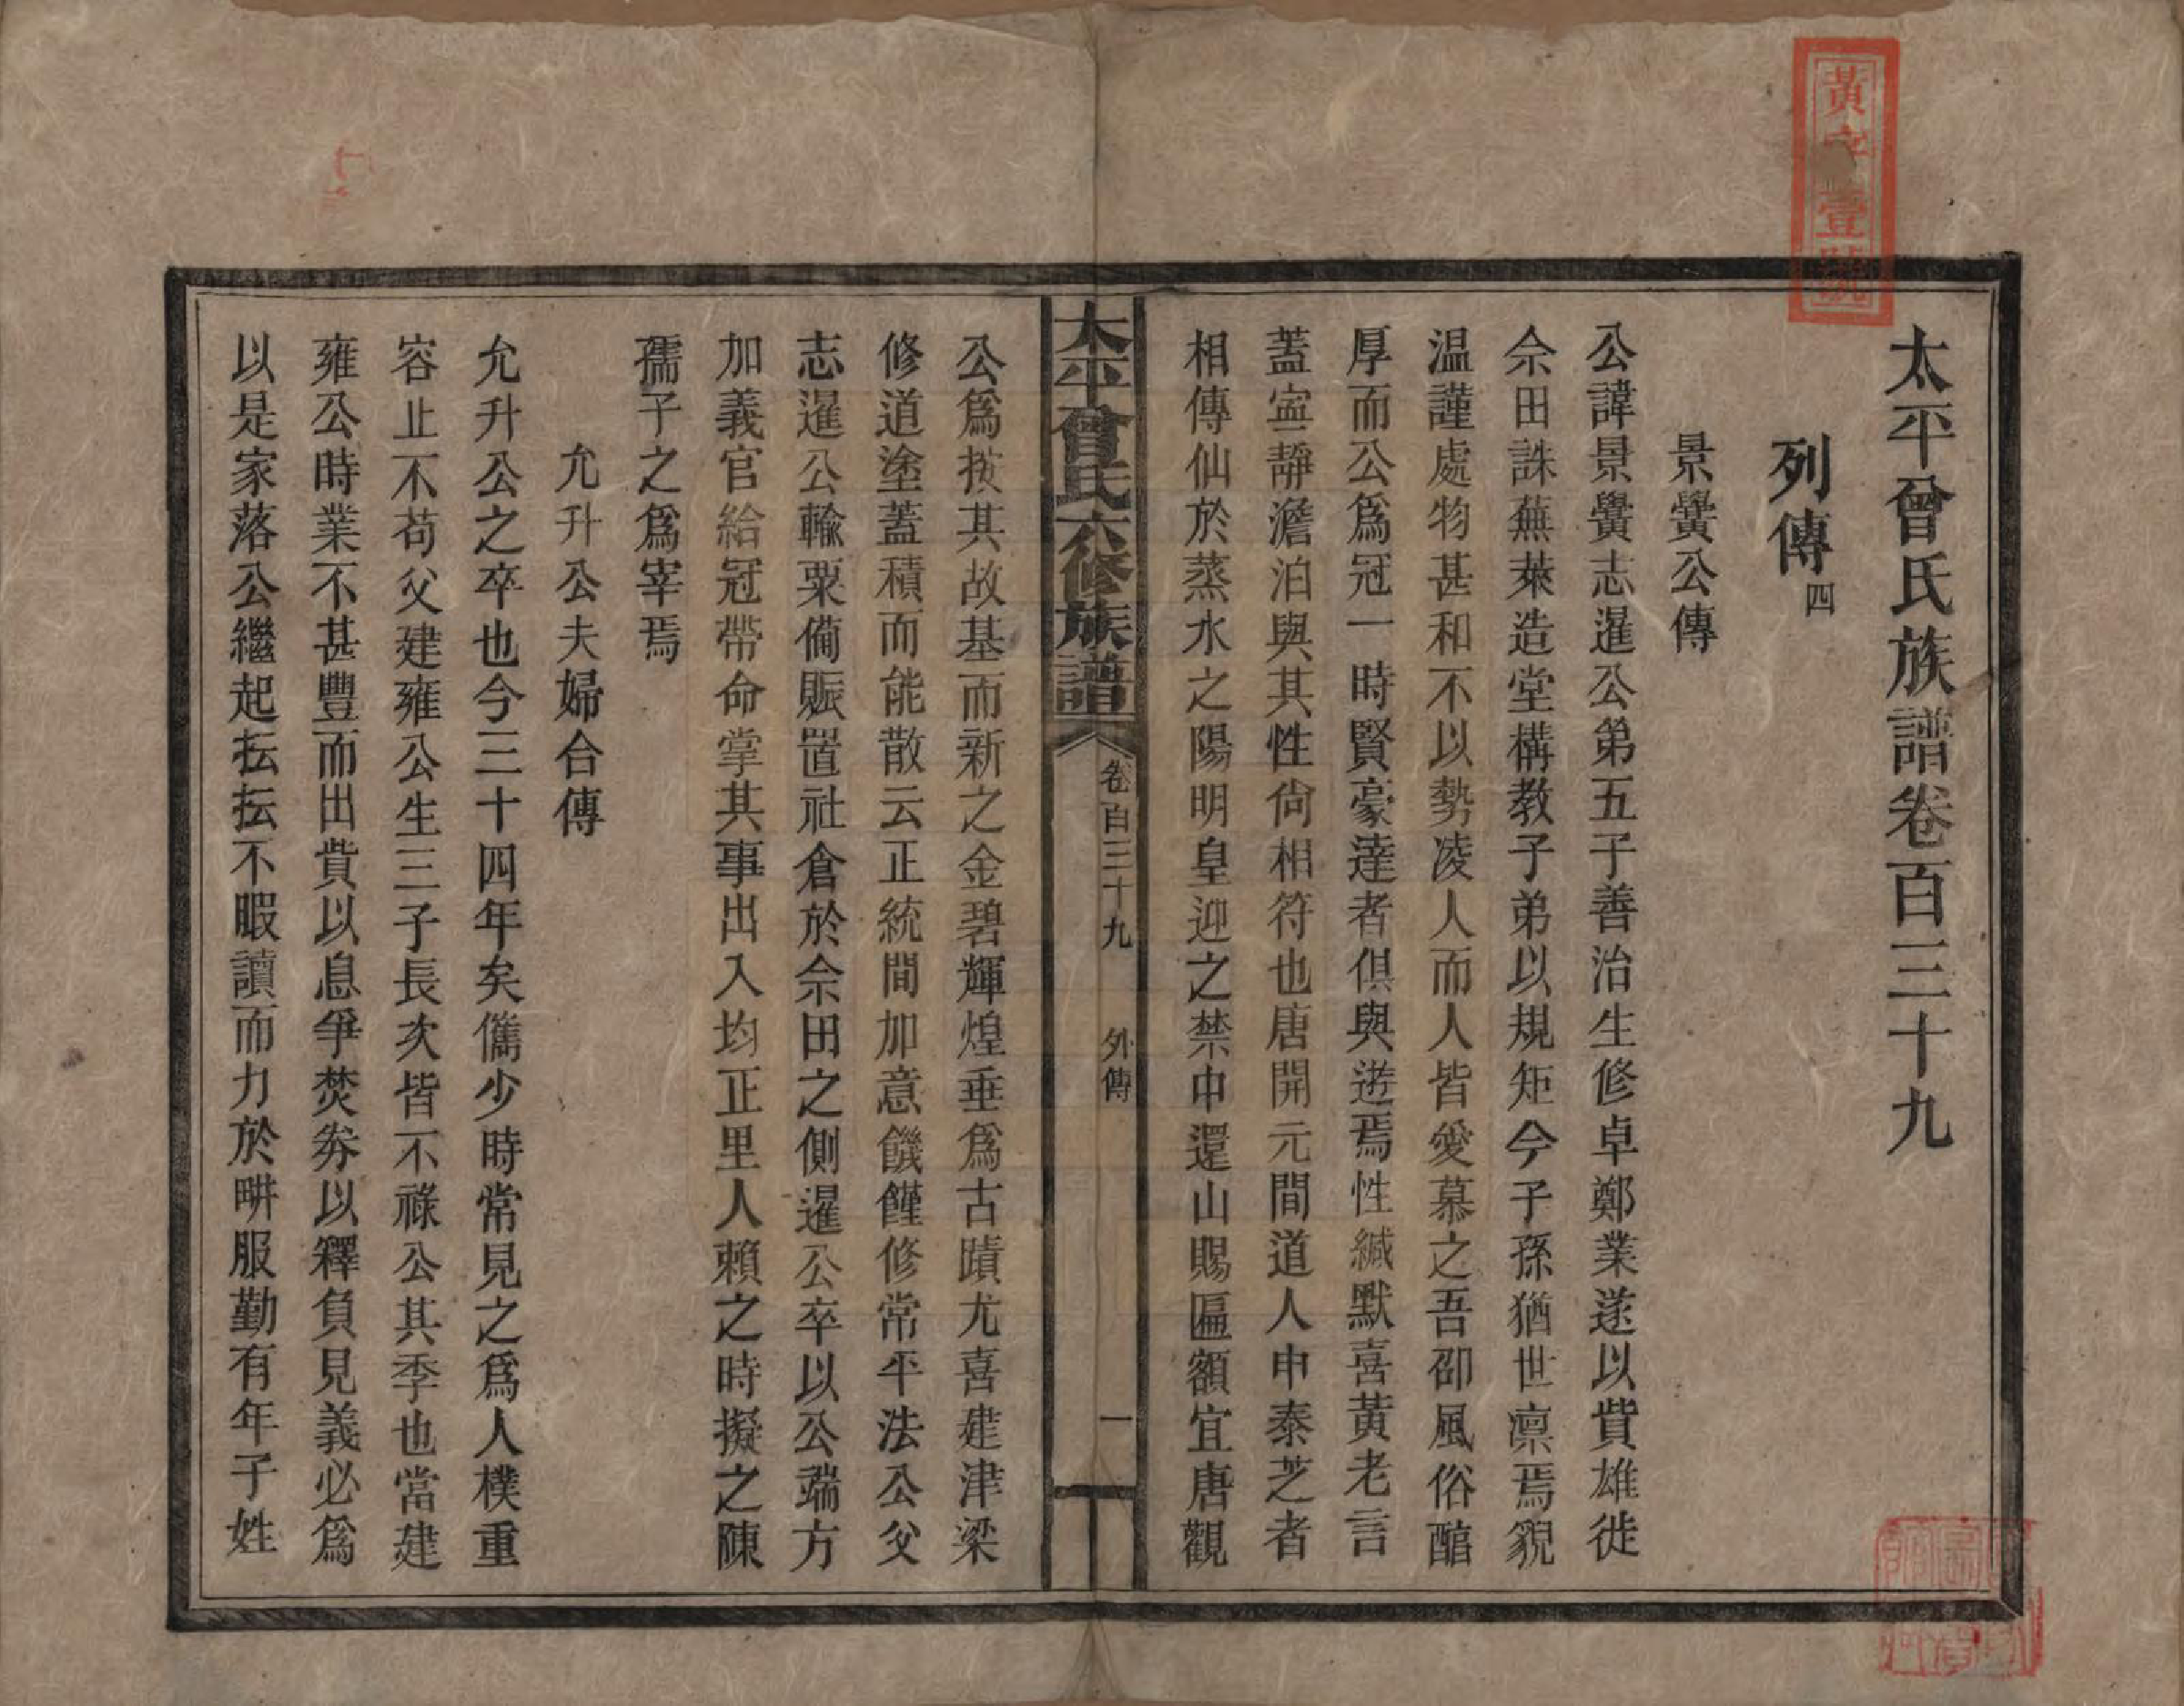 黃字壹號
太平曾氏族譜卷百三十九
列傳四
景黌公傳
公諱景黌志暹公第五子善治生修卓鄭業遂以貲雄徙
佘田誅蕪萊造堂構教子弟以規矩今子孫猶世凛焉貌
温謹處物甚和不以勢凌人而人皆愛慕之吾邵風俗醕
厚而公爲冠一時賢豪達者俱與遊焉性緘默喜黃老言
蓋寍靜澹泊與其性尙相符也唐開元間道人申泰芝者
相傳仙於蒸水之陽明皇迎之禁中還山賜匾額宜唐觀
太平曾氏六修族譜 卷百三十九 外傳 一
公爲拔其故基而新之金碧輝煌垂爲古蹟尤喜建津梁
修道塗蓋積而能散云正統間加意饑饉修常平法公父
志暹公輸粟備賑置社倉於佘田之側暹公卒以公端方
加義官給冠帶命掌其事出入均正里人賴之時擬之陳
孺子之爲宰焉
允升公夫婦合傳
允升公之卒也今三十四年矣儁少時常見之爲人樸重
容止不苟父建雍公生三子長次皆不祿公其季也當建
雍公時業不甚豐而出貲以息爭焚劵以釋負見義必爲
以是家落公繼起抎抎不暇讀而力於畊服勤有年子姓